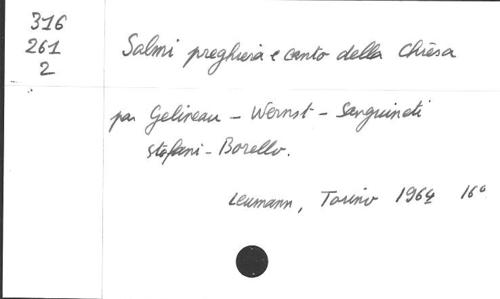 316
261
2
Salmi preghiera e canto della Chiesa
par Gelineau - Wernst - Sanguineti
Stefani - Borello.
Leumann, Torino 1964 16°